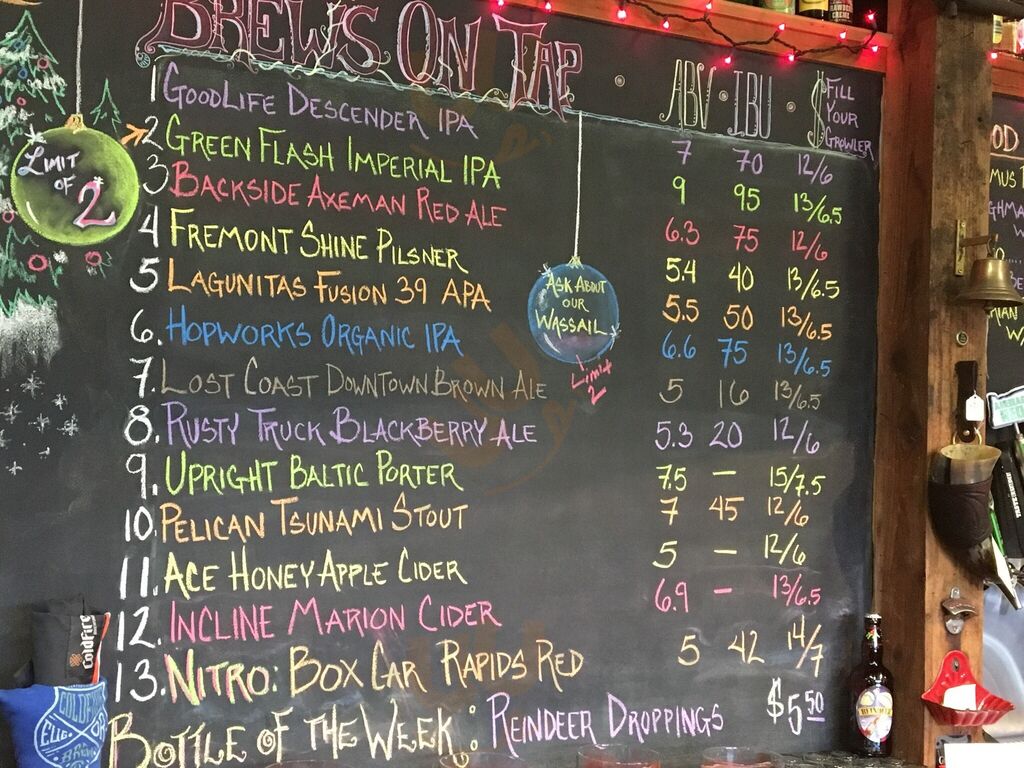 BREWS ON TAP · ABV · IBU · $ FILL YOUR GROWLER
1 GOODLIFE DESCENDER IPA 7 70 12/6
2 GREEN FLASH IMPERIAL IPA 9 95 13/6.5
3 BACKSIDE AXEMAN RED ALE 6.3 75 12/6
4 FREMONT SHINE PILSNER 5.4 40 13/6.5
5 LAGUNITAS FUSION 39 APA 5.5 50 13/6.5
6. HOPWORKS ORGANIC IPA 6.6 75 13/6.5
7. LOST COAST DOWNTOWN BROWN ALE 5 16 13/6.5
8. RUSTY TRUCK BLACKBERRY ALE 5.3 20 12/6
9. UPRIGHT BALTIC PORTER 7.5 – 15/7.5
10. PELICAN TSUNAMI STOUT 7 45 12/6
11. ACE HONEY APPLE CIDER 5 – 12/6
12. INCLINE MARION CIDER 6.9 – 13/6.5
13. NITRO: BOX CAR RAPIDS RED 5 42 14/7
BOTTLE OF THE WEEK: REINDEER DROPPINGS $5.50
LIMIT
OF
2
ASK ABOUT
OUR
WASSAIL
LIMIT
2
ColdFire